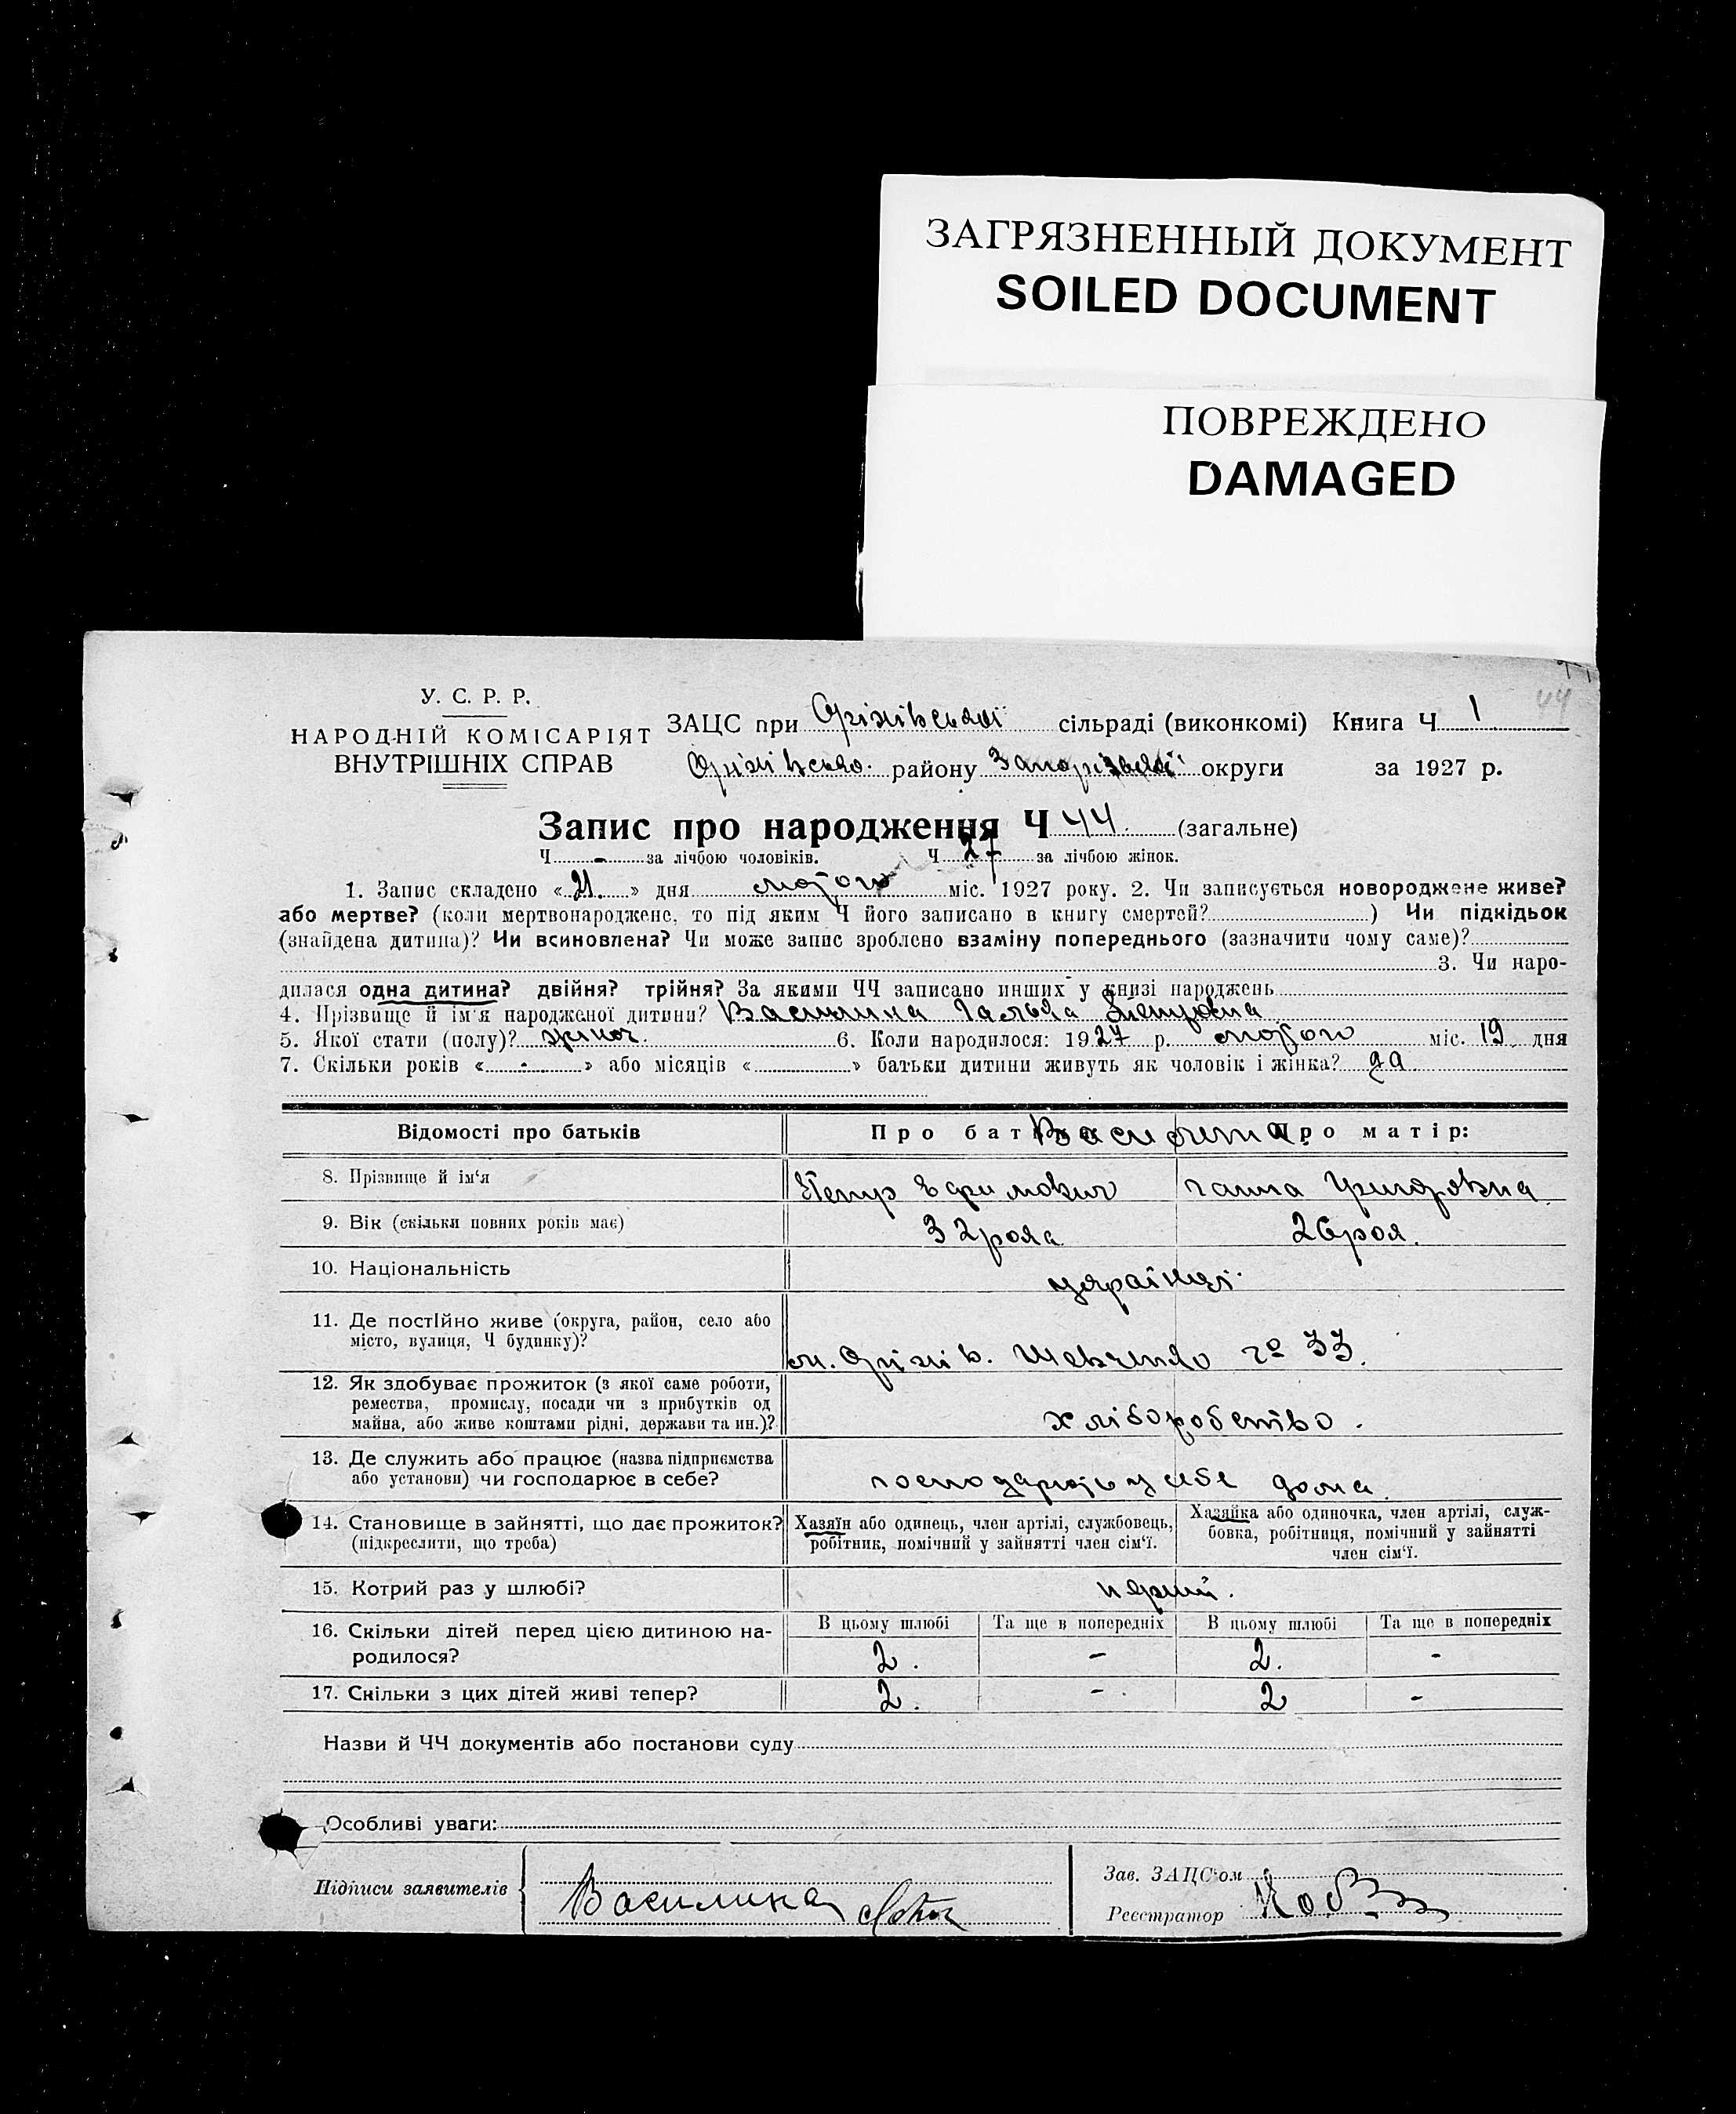 ЗАГРЯЗНЕННЫЙ ДОКУМЕНТ
SOILED DOCUMENT
ПОВРЕЖДЕНО
DAMAGED
44
У. С. Р. Р.
НАРОДНІЙ КОМІСАРІЯТ
ВНУТРІШНІХ СПРАВ
ЗАЦС при Оріхівській сільраді (виконкомі) Книга Ч 1
Оріхівсько. району Запорізької округи за 1927 р.
Запис про народження Ч 44. (загальне)
Ч - за лічбою чоловіків. Ч 27 за лічбою жінок.
1. Запис складено « 21. » дня лютого міс. 1927 року. 2. Чи записується новороджене живе?
або мертве? (коли мертвонароджене, то під яким Ч його записано в книгу смертей? ) Чи підкідьок
(знайдена дитина)? Чи всиновлена? Чи може запис зроблено взаміну попереднього (зазначити чому саме)?
3. Чи наро-
дилася одна дитина? двійня? трійня? За якими ЧЧ записано инших у книзі народжень
4. Прізвище й ім'я народженої дитини? Василина Галька Петровна
5. Якої стати (полу)? жіноч. 6. Коли народилося: 1927 р. лютого міс. 19 дня
7. Скільки років « - » або місяців « » батьки дитини живуть як чоловік і жінка? да
Відомості про батьків
Про батька Василина. Про матір:
8. Прізвище й ім'я Петр Ефимович ганна Григоровна
9. Вік (скільки повних років має) 32 рока 26 рок.
10. Національність українці.
11. Де постІйно живе (округа, район, село або
місто, вулиця, Ч будинку)?
м. Оріхів. Шевченко № 33.
12. Як здобуває прожиток (з якої саме роботи,
ремества, промислу, посади чи з прибутків од
майна, або живе коштами рідні, держави та ин.)?
хліборобство.
13. Де служить або працює (назва підприємства
або установи) чи господарює в себе?
господарюють у себе дома.
14. Становище в зайнятті, що дає прожиток?
(підкреслити, що треба)
Хазяїн або одинець, член артілі, службовець,
робітник, помічний у зайнятті член сім'ї.
Хазяйка або одиночка, член артілі, служ-
бовка, робітниця, помічний у зайнятті
член сім'ї.
15. Котрий раз у шлюбі? перший.
В цьому шлюбі Та ще в попередніх В цьому шлюбі Та ще в попередніх
16. Скільки дітей перед цією дитиною на-
родилося?
2. - 2. -
17. Скільки з цих дітей живі тепер? 2. - 2 -
Назви й ЧЧ документів або постанови суду
Особливі уваги:
Підписи заявителів Василина
Зав. ЗАЦС'ом
Реєстратор